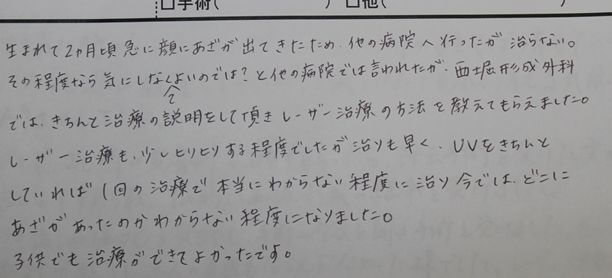 □手術(          ) □他(          )
生まれて2ヵ月頃急に顔にあざが出てきたため、他の病院へ行ったが治らない。
その程度なら気にしなくてよいのでは?と他の病院では言われたが、西堀形成外科
では、きちんと治療の説明をして頂きレーザー治療の方法を教えてもらえました。
レーザー治療も、少しヒリヒリする程度でしたが治りも早く、UVをきちんと
していれば1回の治療で本当にわからない程度に治り今では、どこに
あざがあったのかわからない程度になりました。
子供でも治療ができてよかったです。